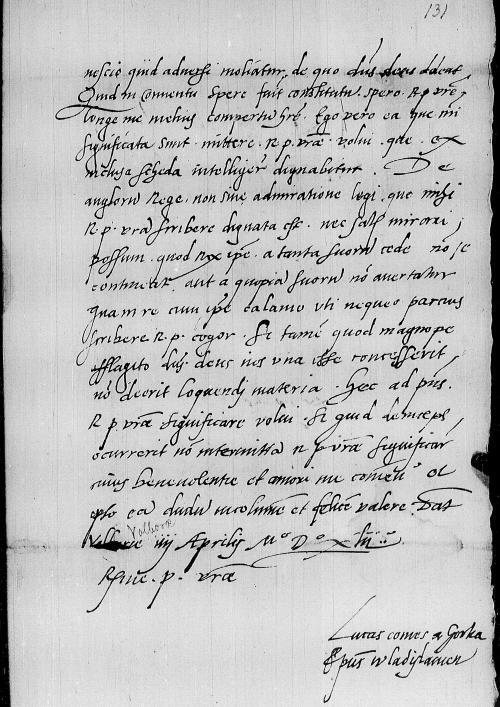 131
nescio quid adversi moliatur, de quo d[omi]n[u]s deus doceat
Quid in conventu Sperẽ fuit constitutũ spero R p vrã
longe me melius compertũ hrẽ. Ego vero ea que mi
significata sunt mittere R. p. vrae volui, que ex
inclusa scheda intelligere dignabitur. De
anglorũ Rege non sine admiratione legi, que mihi
R. p. vra scribere dignata est. nec satis mirari
possum, quod Rex ipẽ a tanta suorũ cede nõ se
contineat, aut a quopiã suorũ nõ avertatur
quam re cum ipẽ calamo uti nequeo parcius
scribere R. p. cogor. Si tamẽ quod magnope
efflagito dñs deus nos una esse concesserit,
nõ deerit loquendi materia. Hec ad pñs.
R p vrae significare volui. Si quid deinceps
occurrerit nõ intermittã R p vrae significar
cuius benevolentie et amori me comẽdo
opto eã diutiss incolumẽ et felicẽ valere. Dat
Volborie
iiij Aprilis Mᵒ Dᵒ xlij
Eiusdẽ. p. vrae
Lucas comes a Gorka
Ep̃us wladislavien